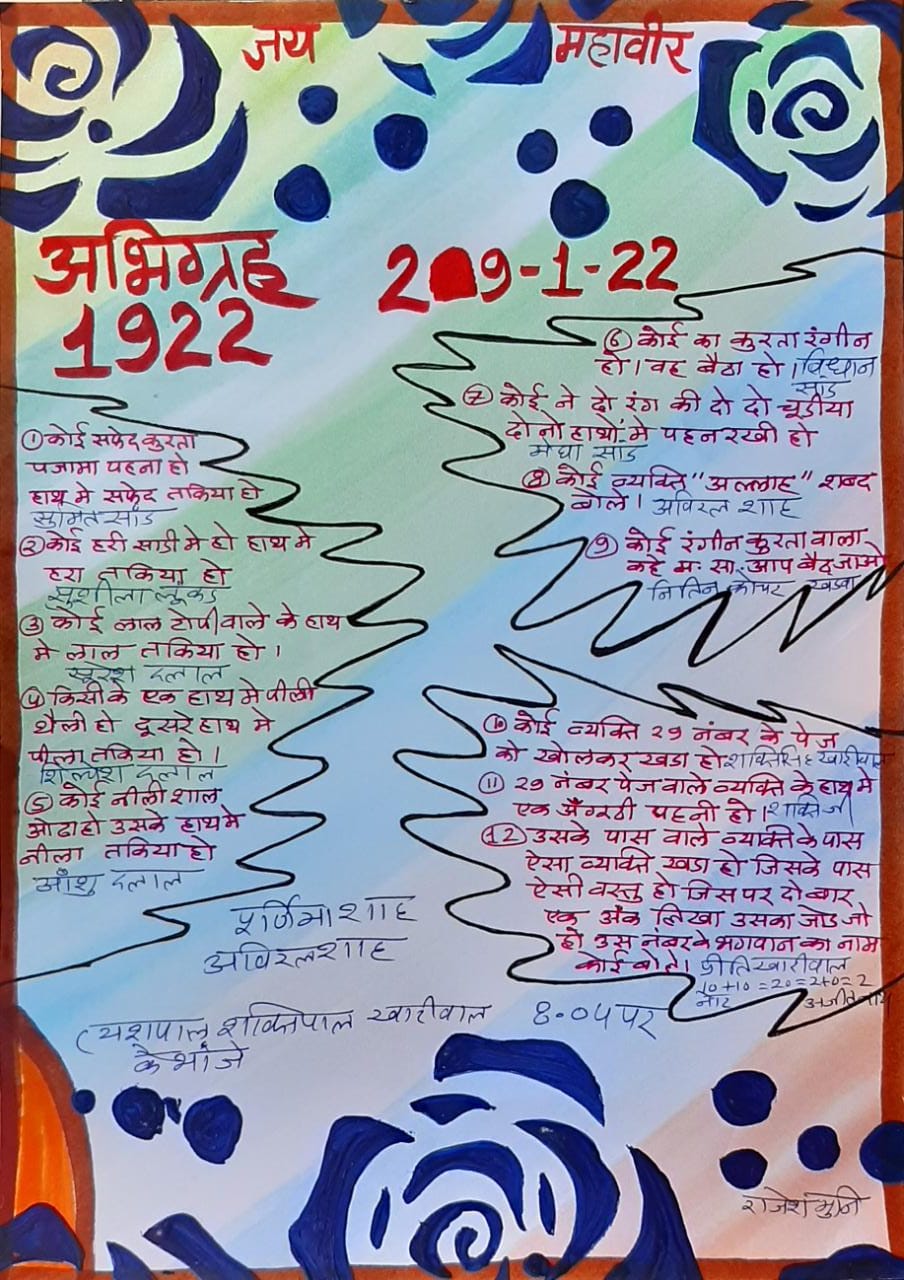 जय महावीर
अभिग्रह
1922
29-1-22
① कोई सफेद कुरता
पजामा पहना हो
हाथ मे सफेद तकिया हो
सुमित सांड
② कोई हरी साडी मे हो हाथ मे
हरा तकिया हो
सुशीला लूंकड
③ कोई लाल टोपी वाले के हाथ
मे लाल तकिया हो।
सुरेश दलाल
④ किसी के एक हाथ मे पीली
थैली हो दूसरे हाथ मे
पीला तकिया हो।
शिल्पेश दलाल
⑤ कोई नीली शाल
ओढा हो उसके हाथ मे
नीला तकिया हो
आँशु दलाल
पूर्णिमा शाह
अविरल शाह
⑥ कोई का कुरता रंगीन
हो। वह बैठा हो। विधान
सांड
⑦ कोई ने दो रंग की दो दो चूडीया
दोनो हाथों मे पहन रखी हो
मेघा सांड
⑧ कोई व्यक्ति "अल्लाह" शब्द
बोले। अविरल शाह
⑨ कोई रंगीन कुरता वाला
कहे म. सा. आप बैठ जाओ
नितिन कोचर खंडवा
⑩ कोई व्यक्ति 29 नंबर के पेज
को खोलकर खडा हो शक्तिसिंह खारीवाल
⑪ 29 नंबर पेज वाले व्यक्ति के हाथ मे
एक अँगूठी पहनी हो। शक्ति जी
⑫ उसके पास वाले व्यक्ति के पास
ऐसा व्यक्ति खडा हो जिसके पास
ऐसी वस्तु हो जिस पर दो बार
एक अंक लिखा उसका जोड जो
हो उस नंबर के भगवान का नाम
कोई बोले। प्रीति खारीवाल
10+10=20=2+0=2
नोट अजीतनाथ
यशपाल शक्तिपाल खारीवाल 8-04 पर
के भांजे
राजेश मुनि